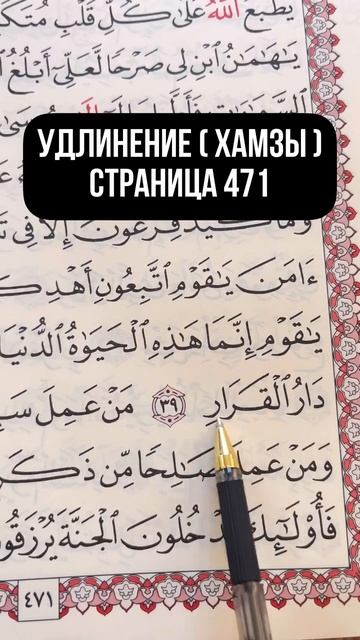 يَطۡبَعُ ٱللَّهُ عَلَىٰ كُلِّ قَلۡبِ
يَٰهَٰمَٰنُ ٱبۡنِ لِي صَرۡحٗا لَّعَلِّيٓ أَبۡلُغُ
УДЛИНЕНИЕ ( ХАМЗЫ )
СТРАНИЦА 471
وَمَا كَيۡدُ فِرۡعَوۡنَ إِلَّا فِي
ءَامَنَ يَٰقَوۡمِ ٱتَّبِعُونِ أَهۡدِكُ
يَٰقَوۡمِ إِنَّمَا هَٰذِهِ ٱلۡحَيَوٰةُ ٱلدُّنۡيَا
دَارُ ٱلۡقَرَارِ ٣٩ مَنۡ عَمِلَ
وَمَنۡ عَمِلَ صَٰلِحٗا مِّن ذَكَرٍ
فَأُوْلَٰٓئِكَ يَدۡخُلُونَ ٱلۡجَنَّةَ يُرۡزَقُونَ
٤٧١